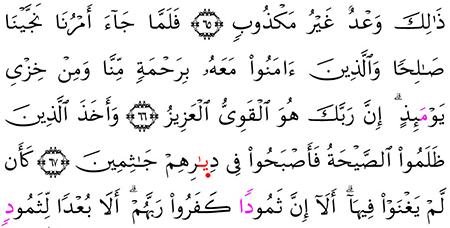 ذَٰلِكَ وَعْدٌ غَيْرُ مَكْذُوبٍ ٦٥ فَلَمَّا جَآءَ أَمْرُنَا نَجَّيْنَا
صَٰلِحًا وَٱلَّذِينَ ءَامَنُوا۟ مَعَهُۥ بِرَحْمَةٍ مِّنَّا وَمِنْ خِزْىِ
يَوْمَئِذٍ ۗ إِنَّ رَبَّكَ هُوَ ٱلْقَوِىُّ ٱلْعَزِيزُ ٦٦ وَأَخَذَ ٱلَّذِينَ
ظَلَمُوا۟ ٱلصَّيْحَةُ فَأَصْبَحُوا۟ فِى دِيَٰرِهِمْ جَٰثِمِينَ ٦٧ كَأَن
لَّمْ يَغْنَوْا۟ فِيهَآ ۗ أَلَآ إِنَّ ثَمُودًا كَفَرُوا۟ رَبَّهُمْ ۗ أَلَا بُعْدًا لِّثَمُودٍ